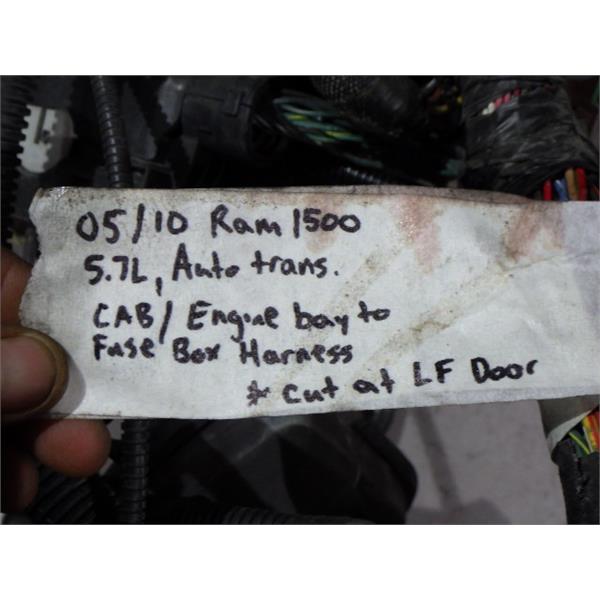 05/10 Ram 1500
5.7L, Auto trans.
CAB/ Engine bay to
Fuse Box Harness
* cut at LF Door